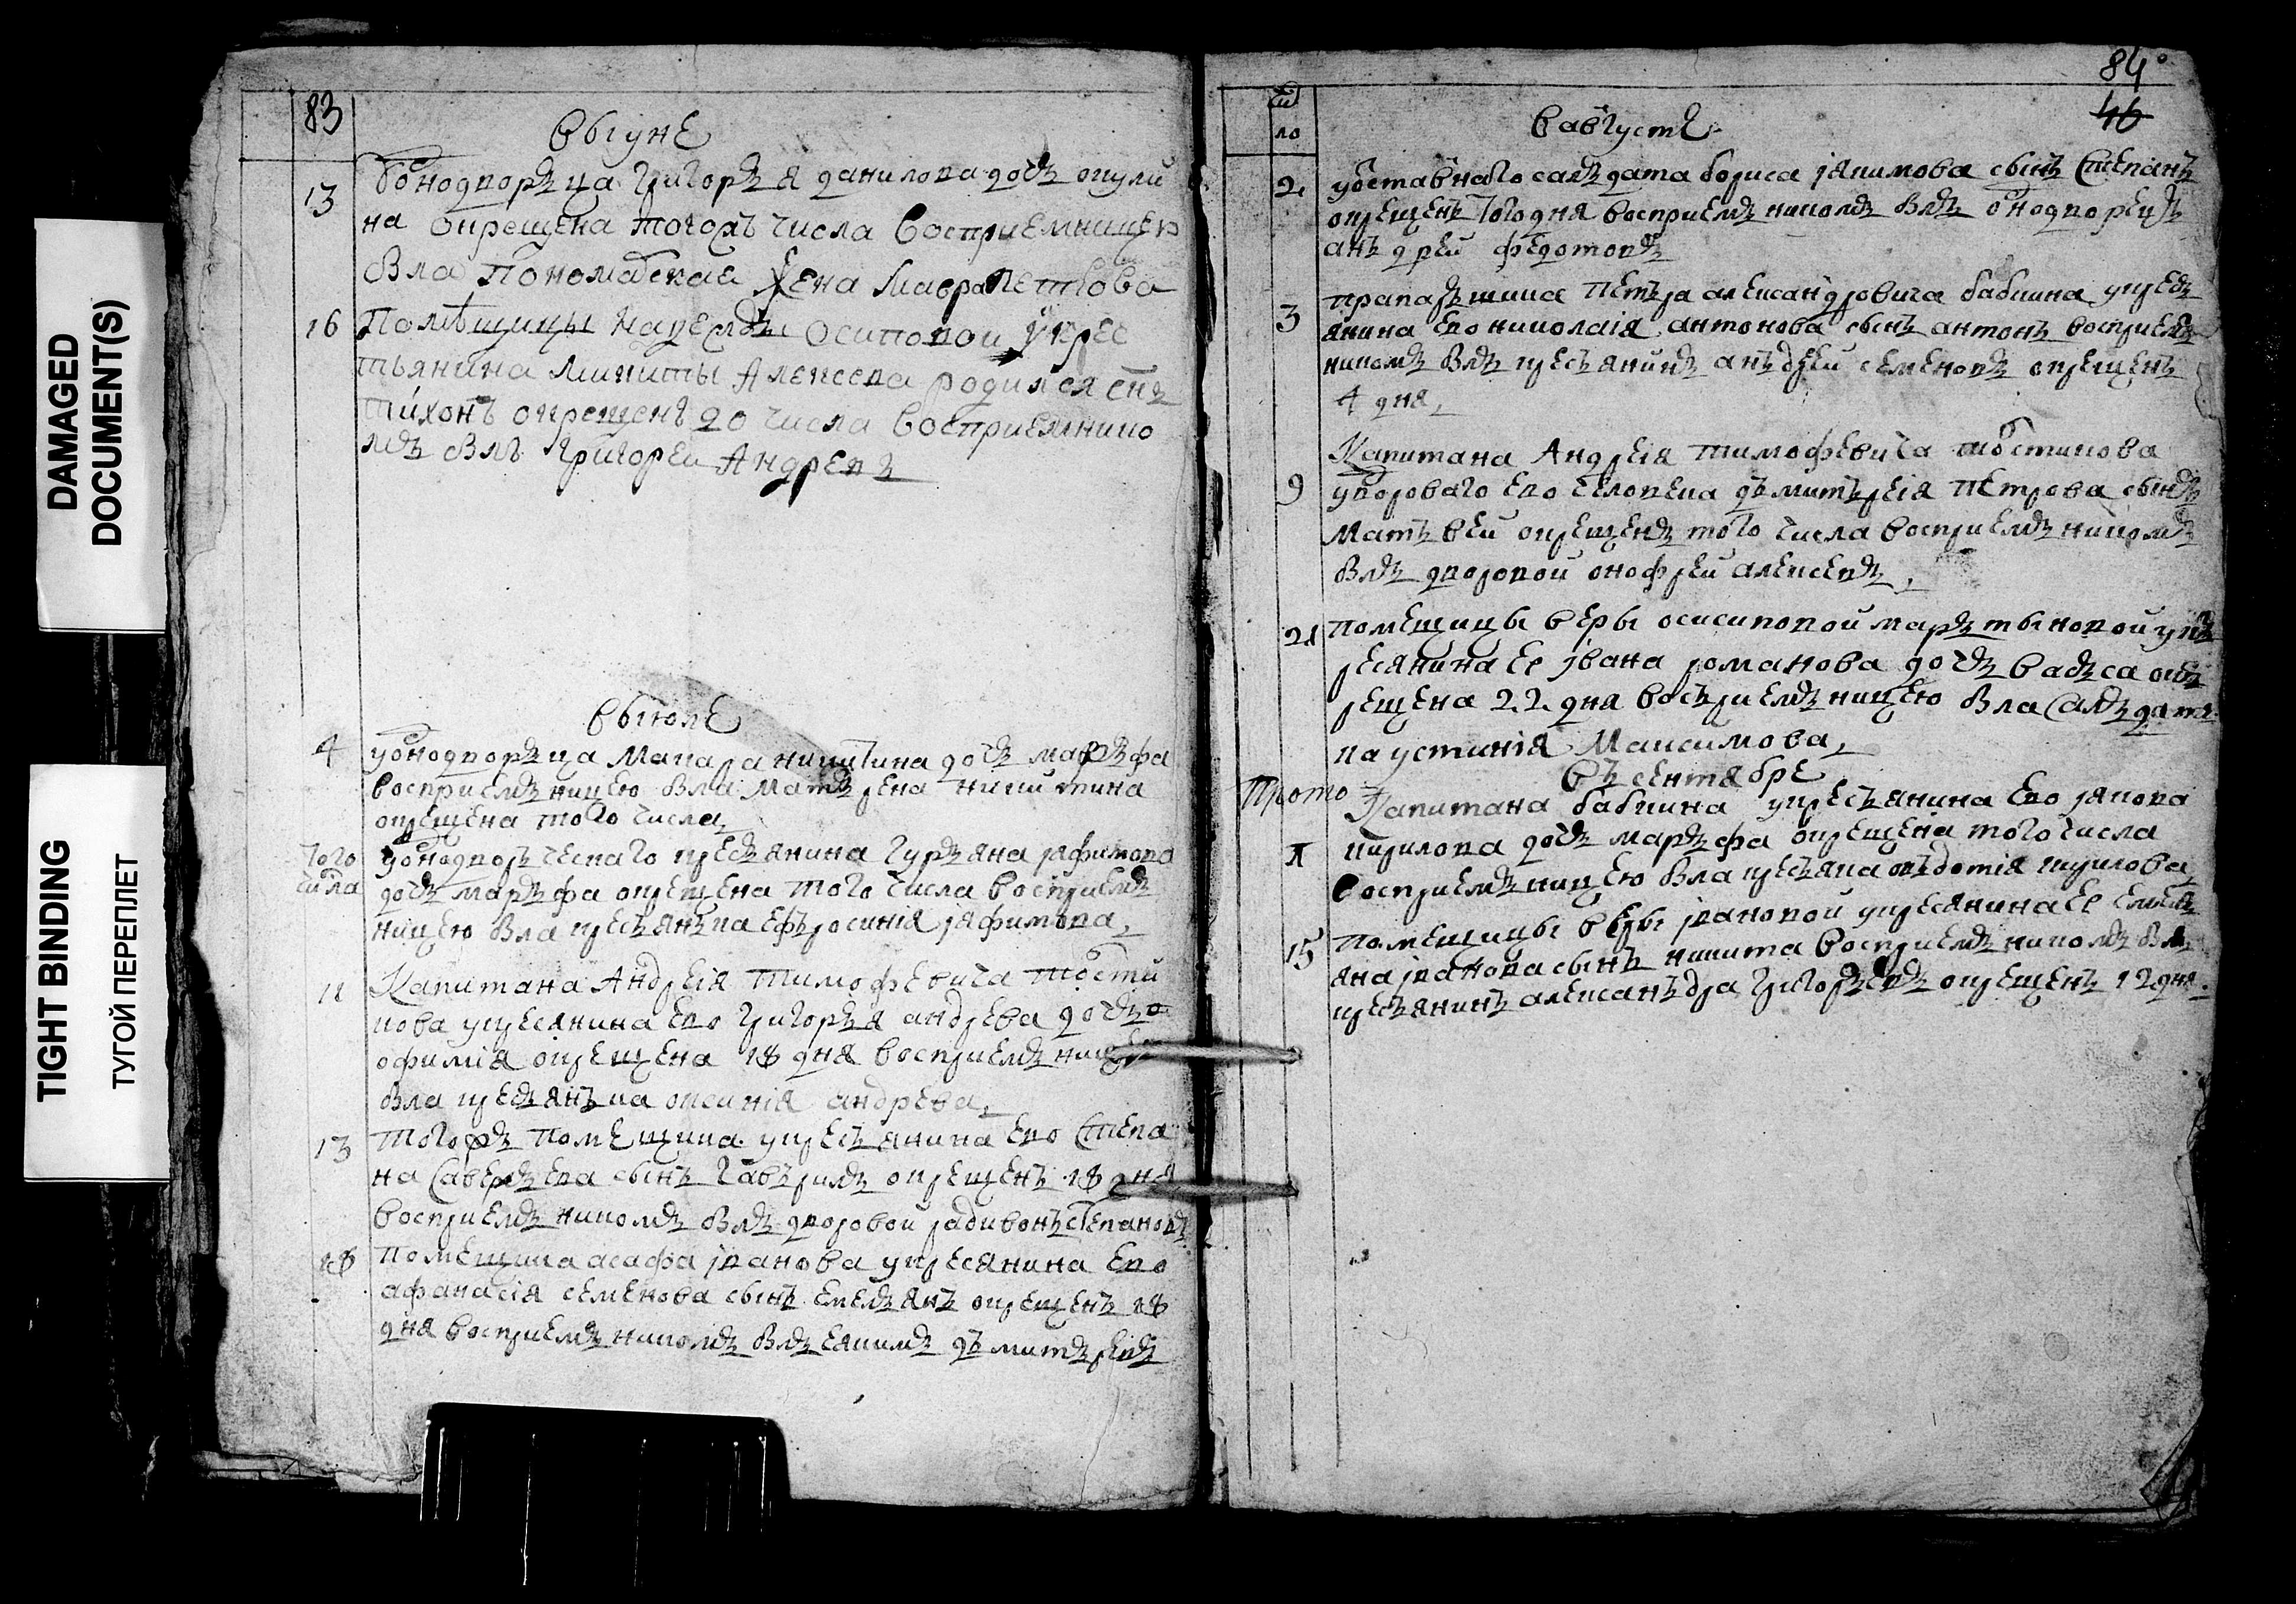 DAMAGED
DOCUMENT(S)
TIGHT BINDING
ТУГОЙ ПЕРЕПЛЕТ
83
выунѣ
13
однодворъца Григоръя данилова дочь окули
на окрещена тогожъ числа восприемницею
была пономарская жена Мавра Петрова
16
Помѣщицы Надежды Осиповой у крес
тьянина Микиты Алексева родился снъ
тихонъ окрещенъ 20 числа восприемнико
мъ былъ Григореи Андревъ
выюле
4
уоднодворъца Макара никитина дочь маръфа
восприемъницею была матъ рена никитина
окрещена того числа
Того
числа
уоднодворъческаго кресъянина Гуръяна
дочь маръфа окрещена того числа восприемъ
ницею была кресъянъка ефъросинiя
11
Капитана Андреiя тимофевича
кова укресянина ево Григоръя андрева дочь
офимiя окрещена 18 дня восприемъницею
была кресъянъка оксинiя андрева
13
тогожъ помещика укресъянина ево Степа
на Савелъева сынъ Гавърилъ окрещенъ 18 дня
восприемъникомъ былъ дворовои радивонъ степановъ
18
помещика асафа иванова укресянина ево
афанасiя семенова сынъ емелъянъ окрещенъ 18
дня восприемъникомъ былъ еякимъ дъмитъревъ
84
46
чи
ло
вавгусте
2
уоставнаго салъдата бориса якимова сынъ Степанъ
окрещенъ того дня восприемъникомъ былъ однодворецъ
анъдреи федотовъ
3
прапаръшика Петъра александровича бабкина укресъ
янина ево николаiя антонова сынъ антонъ восприемъ
никомъ былъ кресъянинъ анъдреи семеновъ окрещенъ
4 дня
9
Капитана Андреiя тимофевича
удвороваго ево человека дъмитърея петрова сынъ
Матъвеи окрещенъ того числа восприемъникомъ
былъ дворовой онофреи алексевъ
21
помещицы веры осиповой маръ тыновой укъ
ресянина ее iвана романова дочь васъса окъ
рещена 22 дня восъприемъницею была салъдатъ
ка устинiя Максимова
въ сентябре
Прото
Капитана бабкина укресъянина ево
кирилова дочь маръфа окрещена того числа
восприемъницею была кресъянка овъдотiя
15
помещицы веры iвановой укресянина ее емелъ
яна iванова сынъ никита восприемъникомъ былъ
кресъянинъ алексанъдра Григоръевъ окрещенъ 12 дня